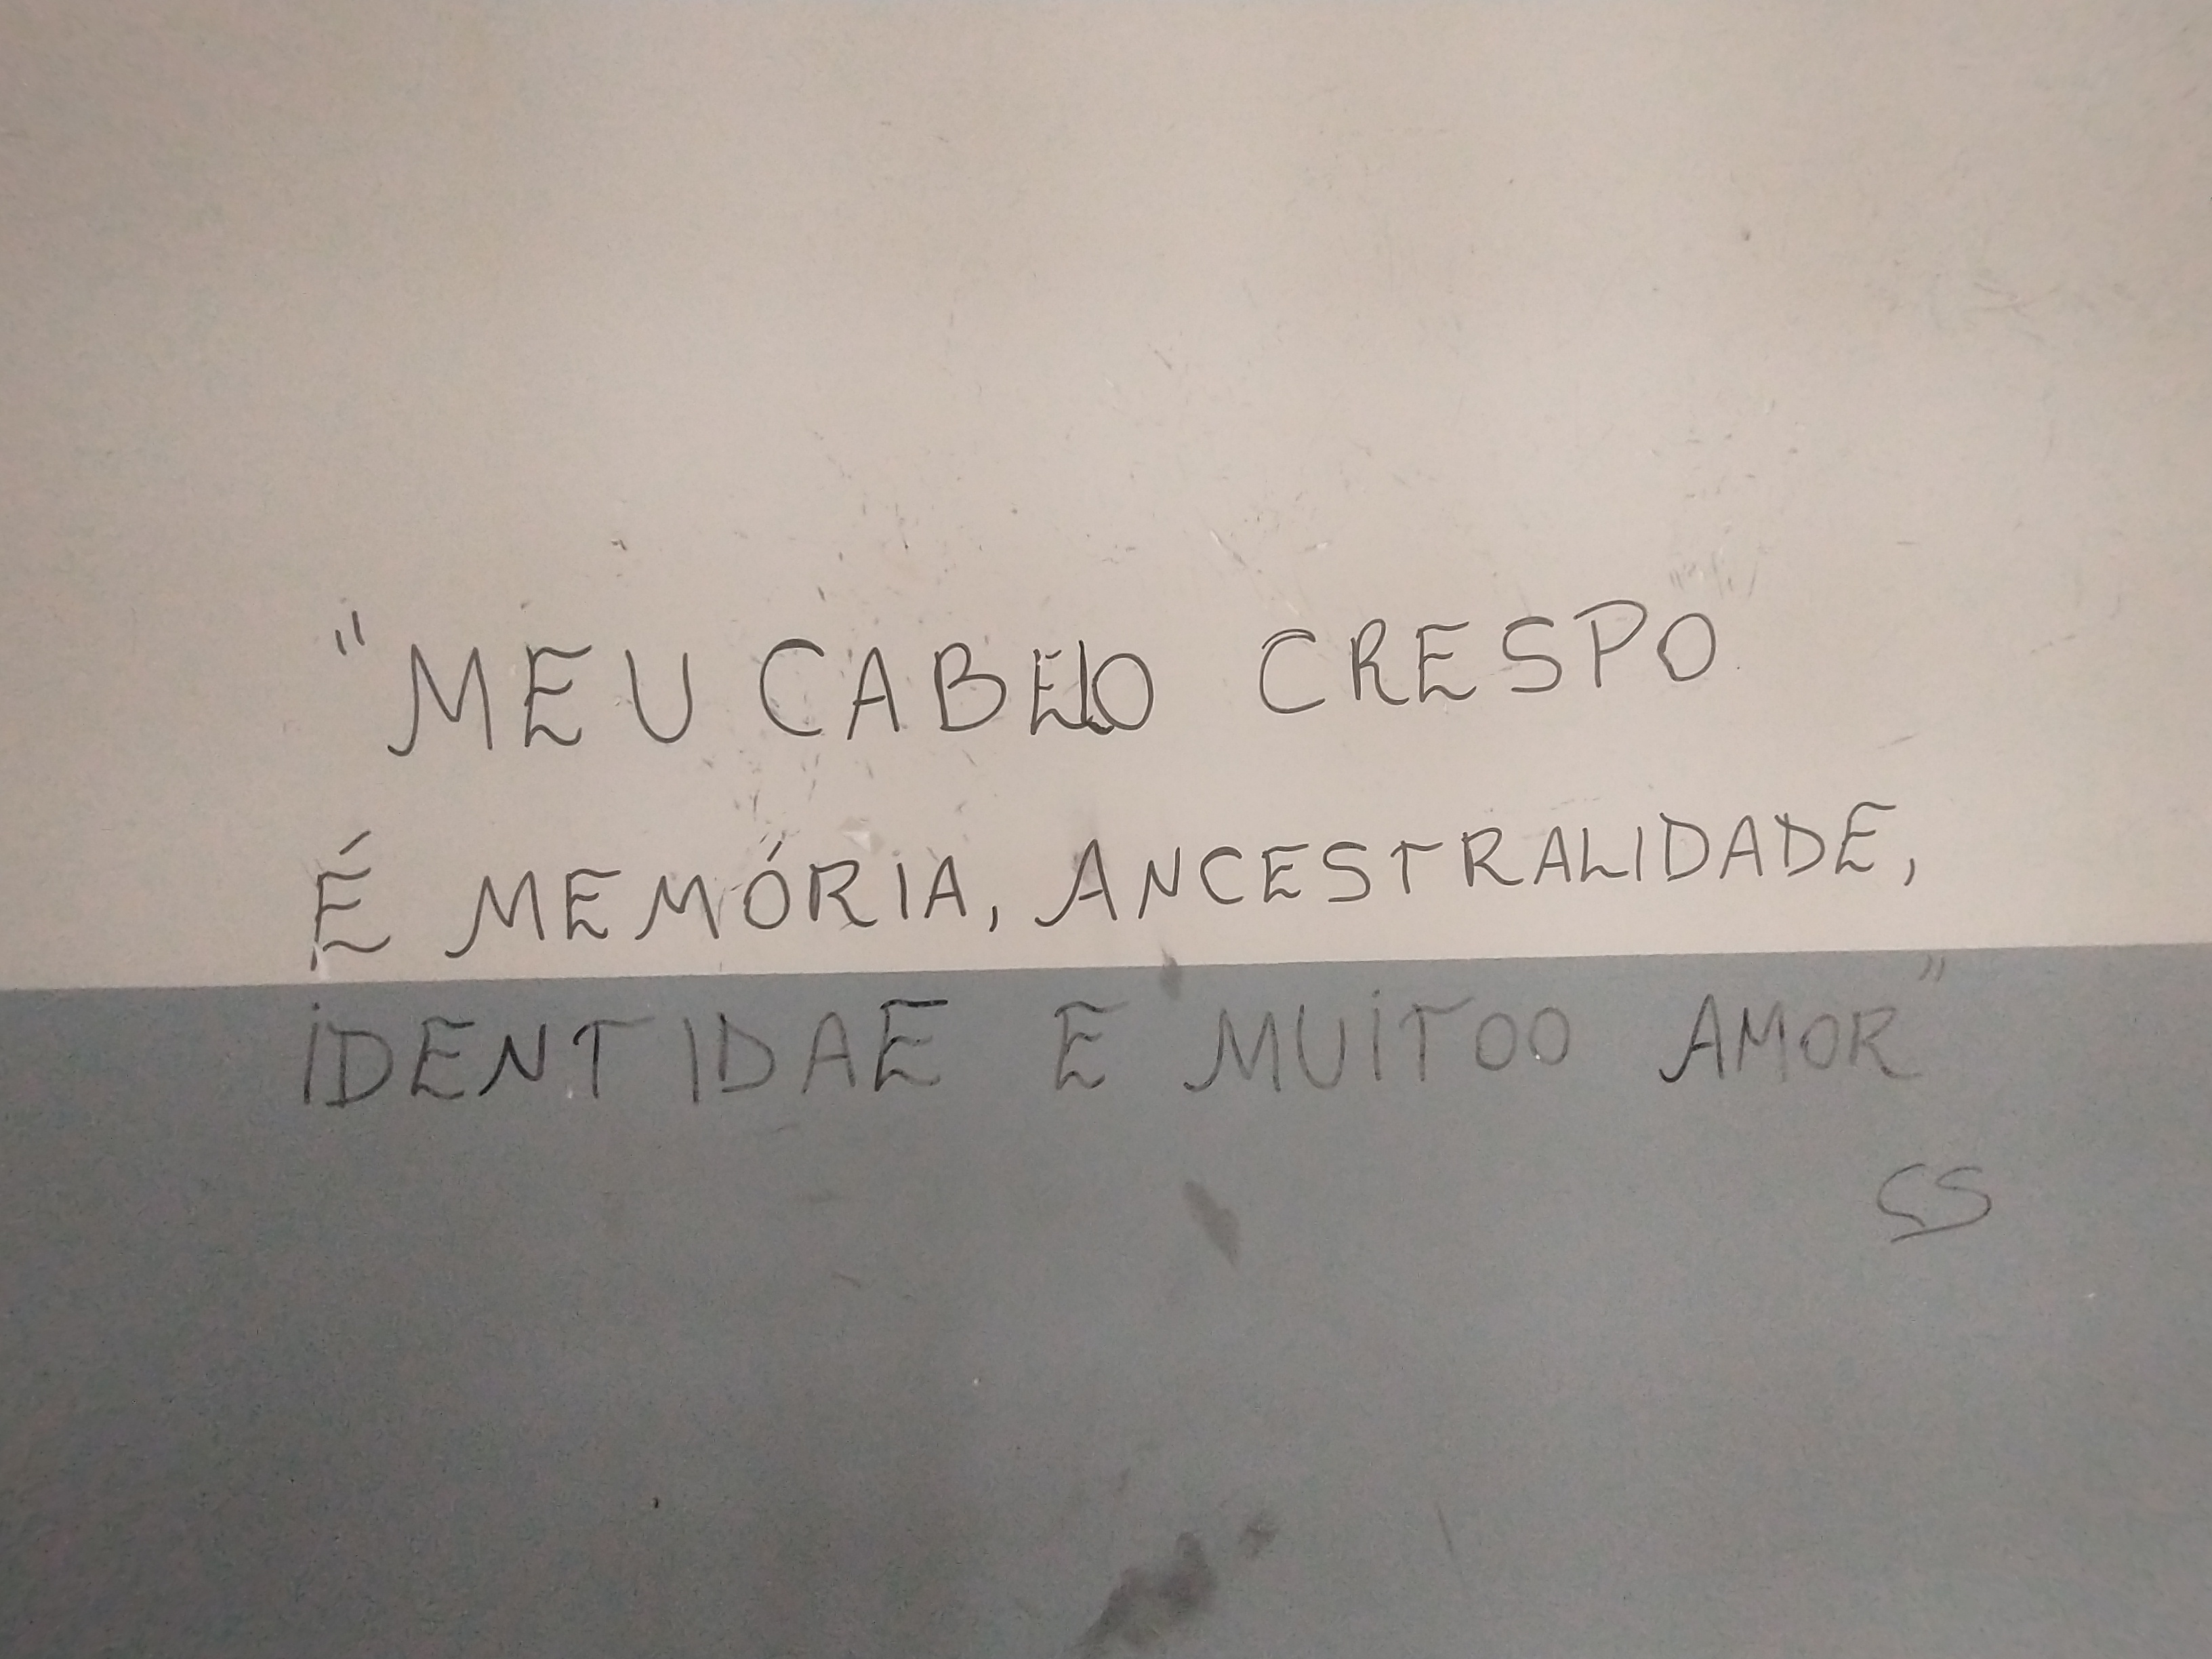 "MEU CABELO CRESPO
É MEMÓRIA, ANCESTRALIDADE,
IDENTIDAE E MUITOO AMOR"
CS